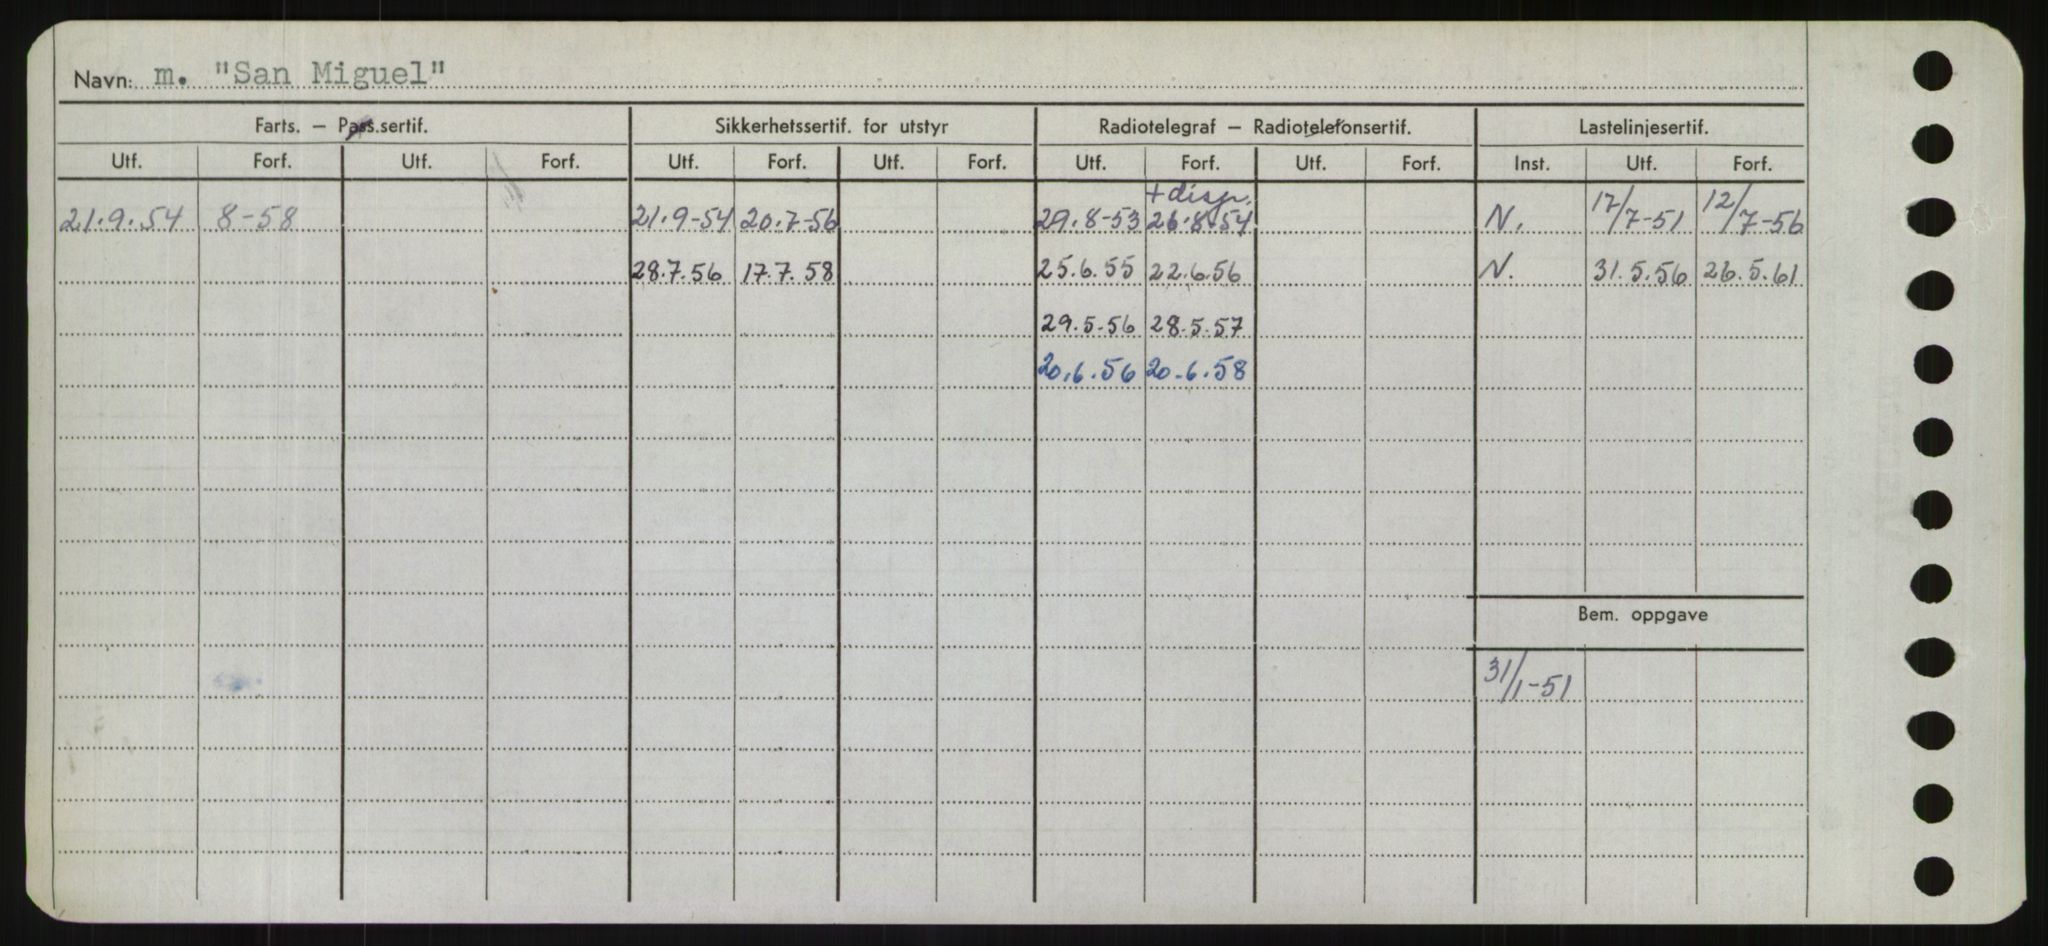 Navn: m. "San Miguel"
Farts. – Pass.sertif. Sikkerhetssertif. for utstyr Radiotelegraf – Radiotelefonsertif. Lastelinjesertif.
Utf. Forf. Utf. Forf. Utf. Forf. Utf. Forf. Utf. Forf. Utf. Forf. Inst. Utf. Forf.
+ disp.
21.9.54 8-58 21.9-54 20.7-56 29.8-53 26.8-54 N. 17/7-51 12/7-56
28.7.56 17.7.58 25.6.55 22.6.56 N. 31.5.56 26.5.61
29.5-56 28.5.57
20.6.56 20-6.58
Bem. oppgave
31/1-51